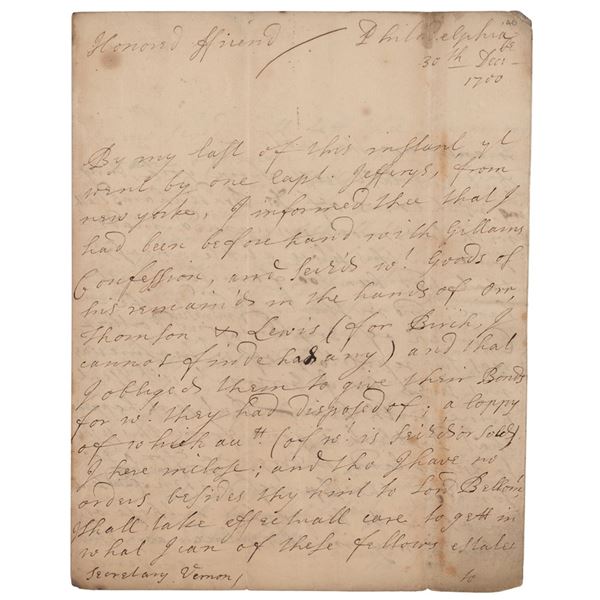 Honord ffriend Philadelphia
30th Decbr
1700
By my last of this instant yt
went by one Capt. Jeffrys, from
new yorke, I informed thee that I
had been before hand with Gillams
Confession, and Seized wt. Goods of
his remaind in the hands of Orr,
Thomson & Lewis (for Birch, I
cannot finde had any) and that
I obliged them to give their Bonds
for wt. they had disposed of; a Coppy
of which acctt (of wt. is Seized or Sold)
I here inclose; and tho I have no
orders, besides thy hint to Lord Bellom
Shall take effectuall care to gett in
what I can of these fellows estates
Secretary Vernon, to